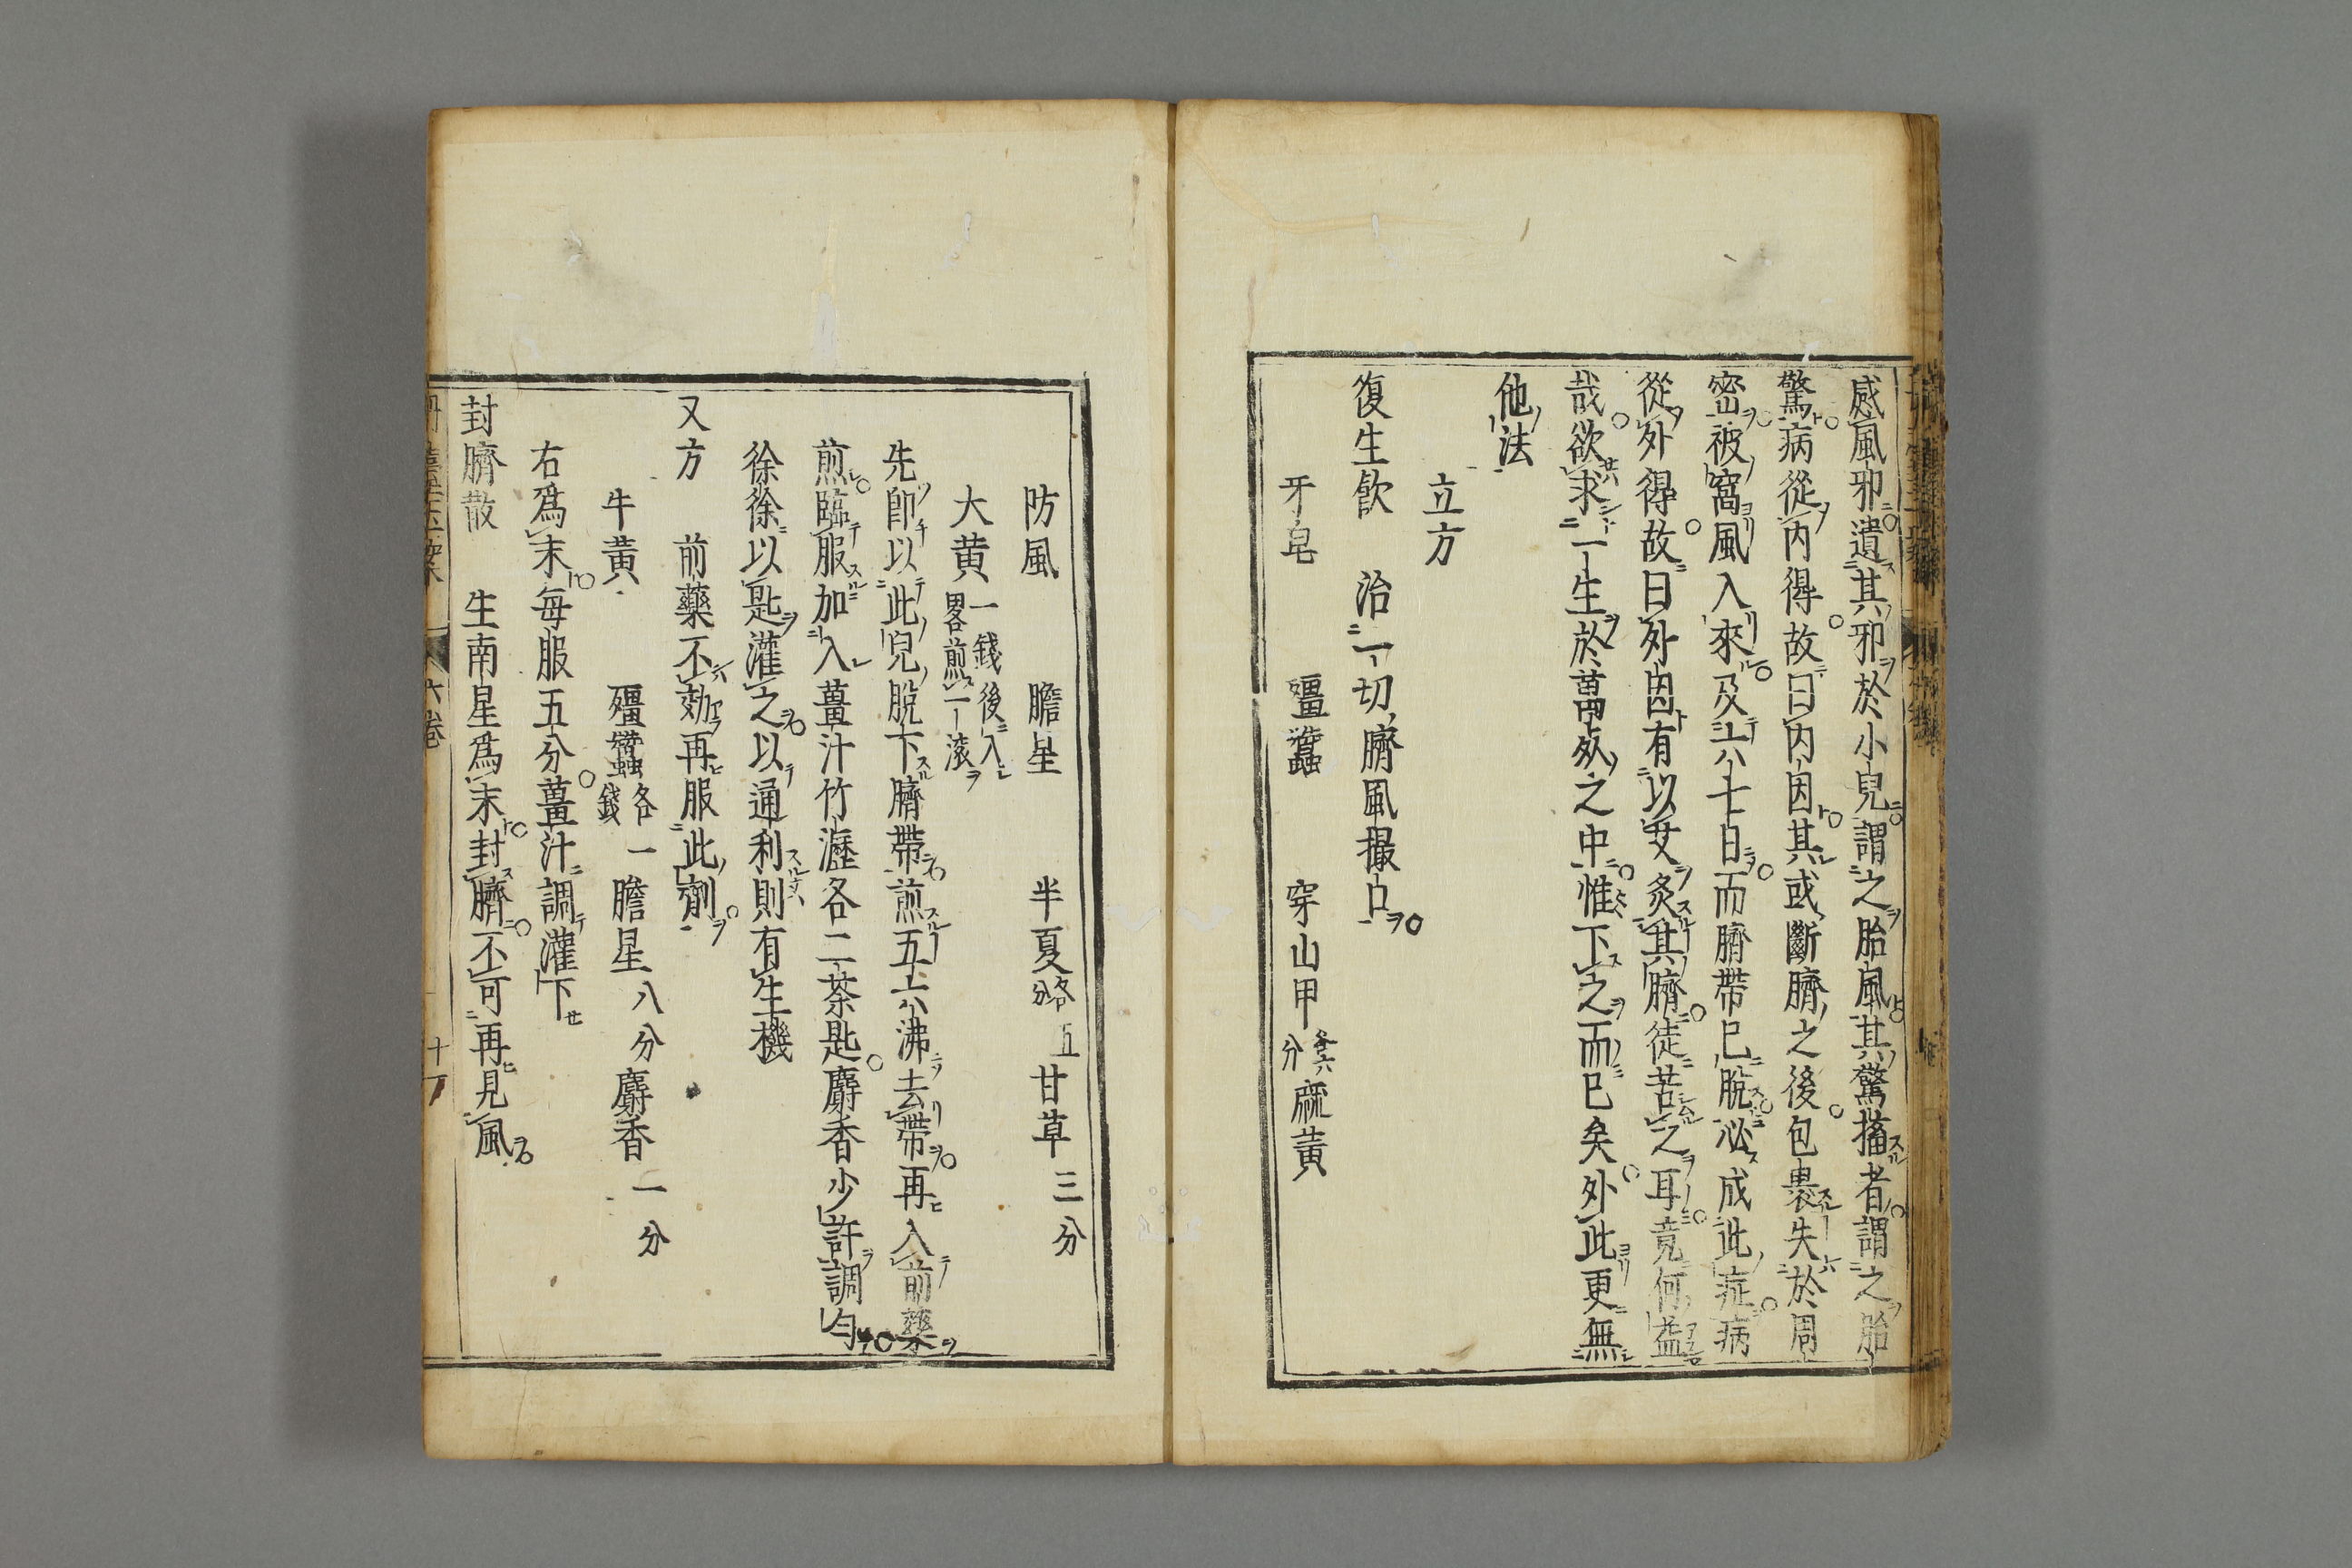 感風邪遺其邪於小兒謂之胎風其驚搐者謂之胎
驚病從內得故曰內因其或斷臍之後包裹失於周
密被窩風入來及六七日而臍帶已脫必成此症病
從外得故曰外因有以艾灸其臍徒苦之耳竟何益
哉欲求一生於萬死之中惟下之而已矣外此更無
他法
立方
復生飲 治一切臍風撮口
牙皂 殭蠶 穿山甲各六分 麻黃
防風 膽星 半夏各五分 甘草三分
大黃一錢後入畧煎一滚
先卽以此兒脫下臍帶煎五六沸去帶再入前藥
煎臨服加入薑汁竹瀝各二茶匙麝香少許調勻
徐徐以匙灌之以通利則有生機
又方 前藥不効再服此劑
牛黃 殭蠶各一錢 膽星八分 麝香一分
右爲末每服五分薑汁調灌下
封臍散 生南星爲末封臍不可再見風
六卷 十一